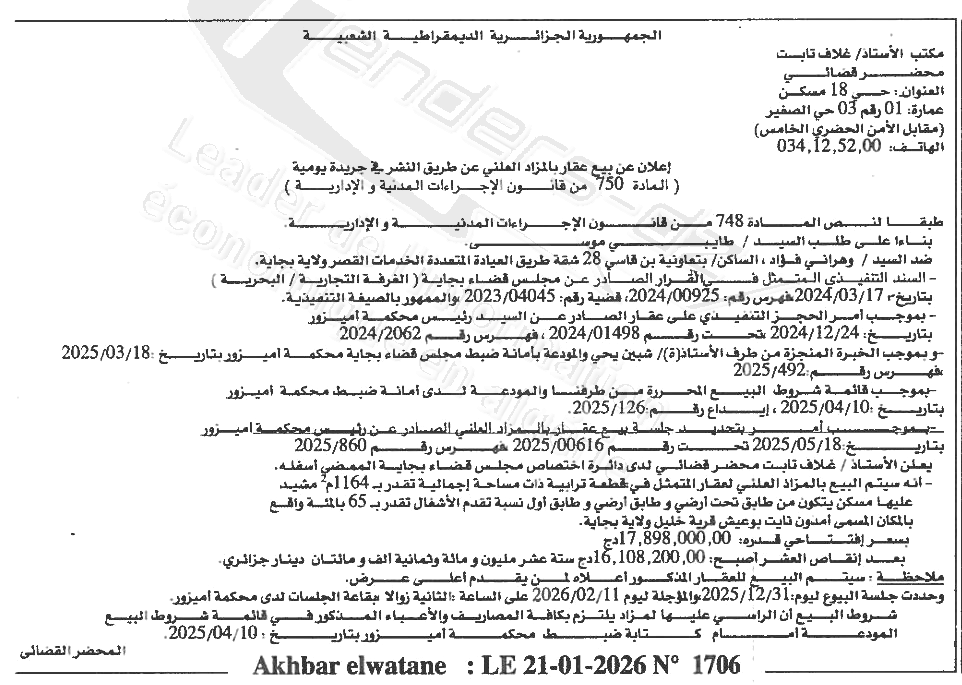 الجمهورية الجزائرية الديمقراطية الشعبية
مكتب الأستاذ/ غلاف ثابت
محضر قضائي
العنوان: حي 18 مسكن
عمارة: 01 رقم 03 حي الصغير
(مقابل الأمن الحضري الخامس)
الهاتف: 034,12,52,00
إعلان عن بيع عقار بالمزاد العلني عن طريق النشر في جريدة يومية
( المادة 750 من قانون الإجراءات المدنية و الإدارية )
طبقا لنص المادة 748 من قانون الإجراءات المدنية و الإدارية.
بناءا على طلب السيد / طايبي موسى.
ضد السيد / وهراني فؤاد ، الساكن/ بتعاونية بن قاسي 28 شقة طريق العيادة المتعددة الخدمات القصر ولاية بجاية.
– السند التنفيذي المتمثل في القرار الصادر عن مجلس قضاء بجاية ( الغرفة التجارية / البحرية )
بتاريخ: 2024/03/17 فهرس رقم: 2024/00925، قضية رقم: 2023/04045 والممهور بالصيغة التنفيذية.
– بموجب أمر الحجز التنفيذي على عقار الصادر عن السيد رئيس محكمة أميزور
بتاريخ: 2024/12/24 ،تحت رقم 2024/01498 ، فهرس رقم 2024/2062
-و بموجب الخبرة المنجزة من طرف الأستاذ(ة)/ شبين يحي والمودعة بأمانة ضبط مجلس قضاء بجاية محكمة أميزور بتاريخ :2025/03/18
،فهرس رقم:2025/492
-بموجب قائمة شروط البيع المحررة من طرفنا والمودعة لدى أمانة ضبط محكمة أميزور
بتاريخ :2025/04/10 ، إيداع رقم:2025/126.
-بموجب أمر بتحديد جلسة بيع عقار بالمزاد العلني الصادر عن رئيس محكمة أميزور
بتاريخ:2025/05/18 تحت رقم 2025/00616 فهرس رقم 2025/860
يعلن الأستاذ / غلاف ثابت محضر قضائي لدى دائرة اختصاص مجلس قضاء بجاية الممضي أسفله.
– أنه سيتم البيع بالمزاد العلني لعقار المتمثل في:قطعة ترابية ذات مساحة إجمالية تقدر بـ 1164م2 مشيد
عليها مسكن يتكون من طابق تحت أرضي و طابق أرضي و طابق أول نسبة تقدم الأشغال تقدر بـ 65 بالمئة واقع
بالمكان المسمى أمدون نايت بوعيش قرية خليل ولاية بجاية.
بسعر إفتتاحي قدره: 17,898,000,00دج
بعد إنقاص العشر أصبح: 16,108,200,00دج ستة عشر مليون و مائة وثمانية ألف و مائتان دينار جزائري.
ملاحظة : سيتم البيع للعقار المذكور أعلاه لمن يقدم أعلى عرض.
وحددت جلسة البيوع ليوم:2025/12/31 والمؤجلة ليوم 2026/02/11 على الساعة :الثانية زوالا بقاعة الجلسات لدى محكمة أميزور.
شروط البيع أن الراسي عليها لمزاد يلتزم بكافة المصاريف والأعباء المذكور في قائمة شروط البيع
المودعة أمام كتابة ضبط محكمة أميزور بتاريخ : 2025/04/10.
المحضر القضائي
Akhbar elwatane : LE 21-01-2026 N° 1706